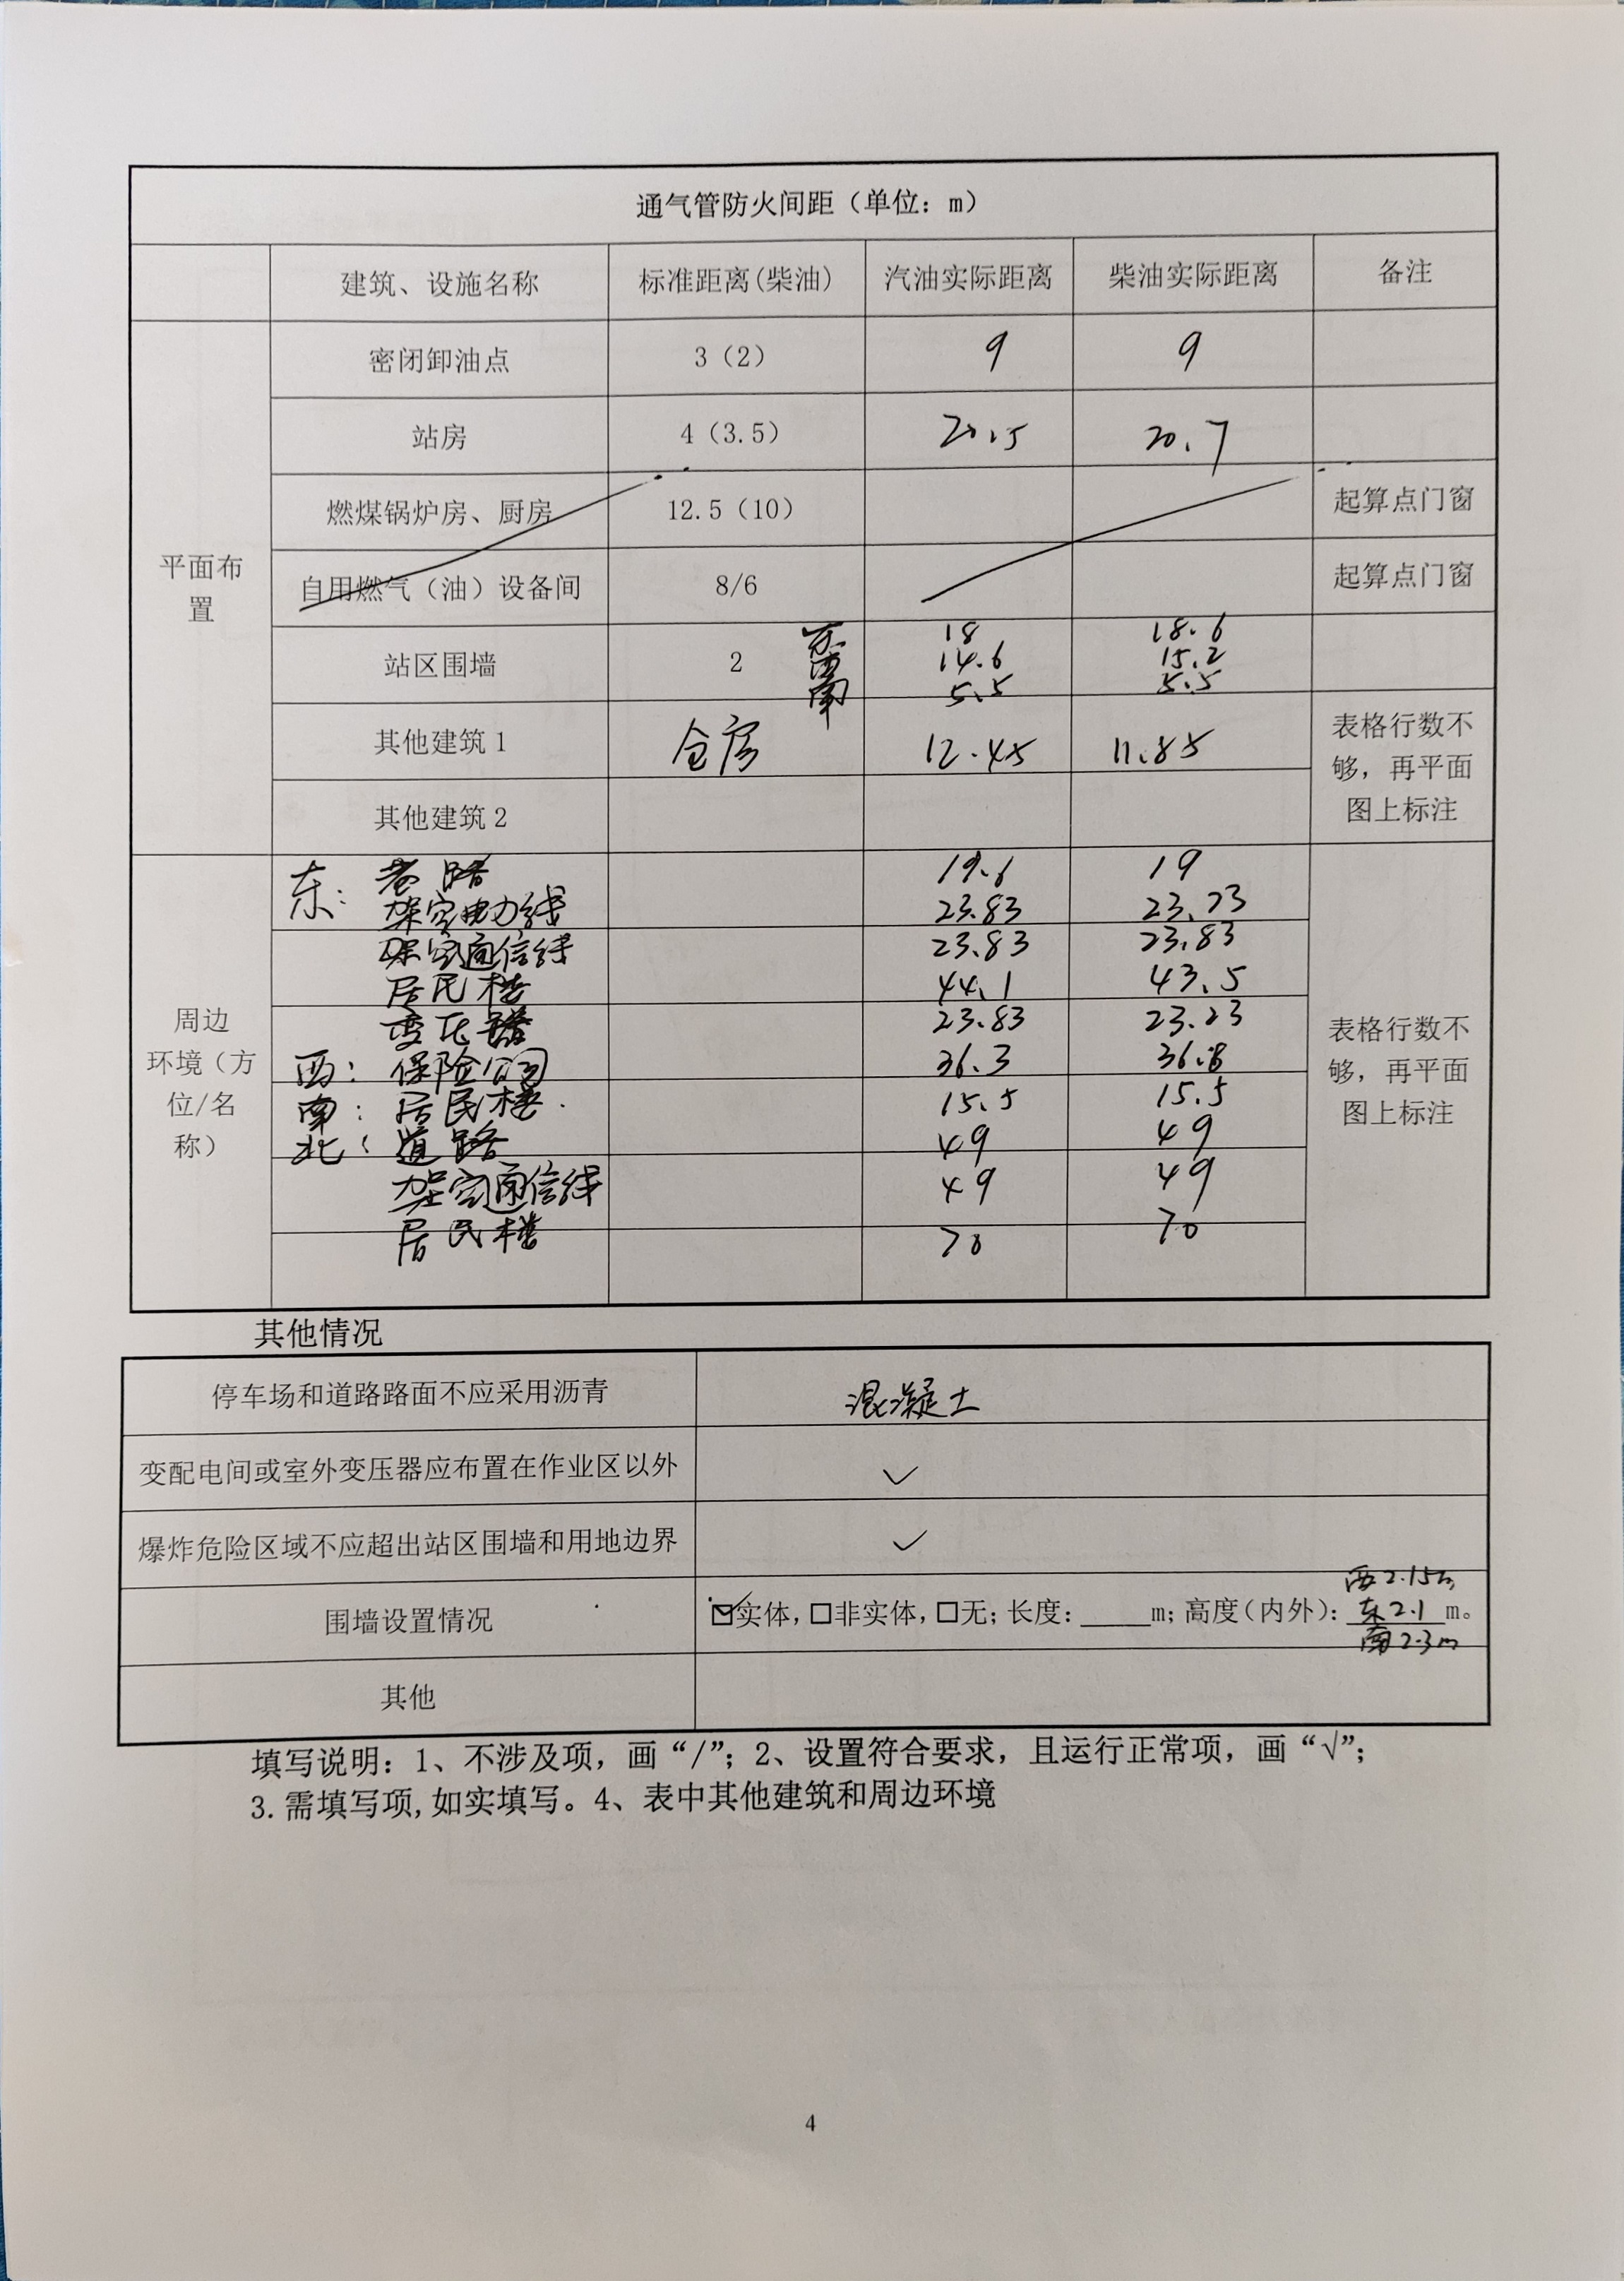 通气管防火间距（单位：m）
建筑、设施名称 标准距离(柴油) 汽油实际距离 柴油实际距离 备注
平面布置
密闭卸油点 3（2） 9 9
站房 4（3.5） 20.5 20.7
燃煤锅炉房、厨房 12.5（10） 起算点门窗
自用燃气（油）设备间 8/6 起算点门窗
站区围墙 2 东 18 18.6
西 14.6 15.2
南 5.5 5.5
其他建筑1 仓房 12.45 11.85 表格行数不够，再平面图上标注
其他建筑2
周边环境（方位/名称）
表格行数不够，再平面图上标注
东： 路 19.6 19
架空电力线 23.83
架空通信线 23.83 23.83
居民楼 44.1 43.5
变压器 23.83 23.23
西： 保险公司 36.3 36.8
南： 居民楼 15.5 15.5
北： 道路 49 49
架空通信线 49 49
居民楼 70 70
其他情况
停车场和道路路面不应采用沥青 混凝土
变配电间或室外变压器应布置在作业区以外 ✓
爆炸危险区域不应超出站区围墙和用地边界 ✓
围墙设置情况 ☑实体，□非实体，□无；长度：____m；高度（内外）：西2.15m 东2.1 m。 南2.3m
其他
填写说明：1、不涉及项，画“/”；2、设置符合要求，且运行正常项，画“√”；
3.需填写项,如实填写。4、表中其他建筑和周边环境
4